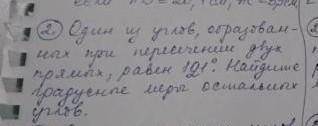 ② Один из углов, образован-
ных при пересечении двух
прямых, равен 121°. Найдите
градусные меры остальных
углов.